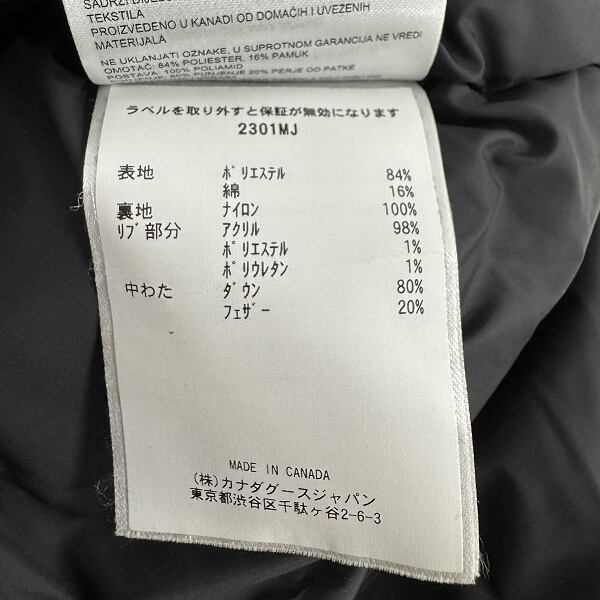 TEKSTILA
PROIZVEDENO U KANADI OD DOMAĆIH I UVEZENIH
MATERIJALA
NE UKLANJATI OZNAKE, U SUPROTNOM GARANCIJA NE VREDI
OMOTAČ: 84% POLIESTER, 16% PAMUK
POSTAVA: 100% POLIAMID
ラベルを取り外すと保証が無効になります
2301MJ
表地 ﾎﾟﾘｴｽﾃﾙ 84%
綿 16%
裏地 ﾅｲﾛﾝ 100%
ﾘﾌﾞ部分 ｱｸﾘﾙ 98%
ﾎﾟﾘｴｽﾃﾙ 1%
ﾎﾟﾘｳﾚﾀﾝ 1%
中わた ﾀﾞｳﾝ 80%
ﾌｪｻﾞｰ 20%
MADE IN CANADA
(株)カナダグースジャパン
東京都渋谷区千駄ヶ谷2-6-3